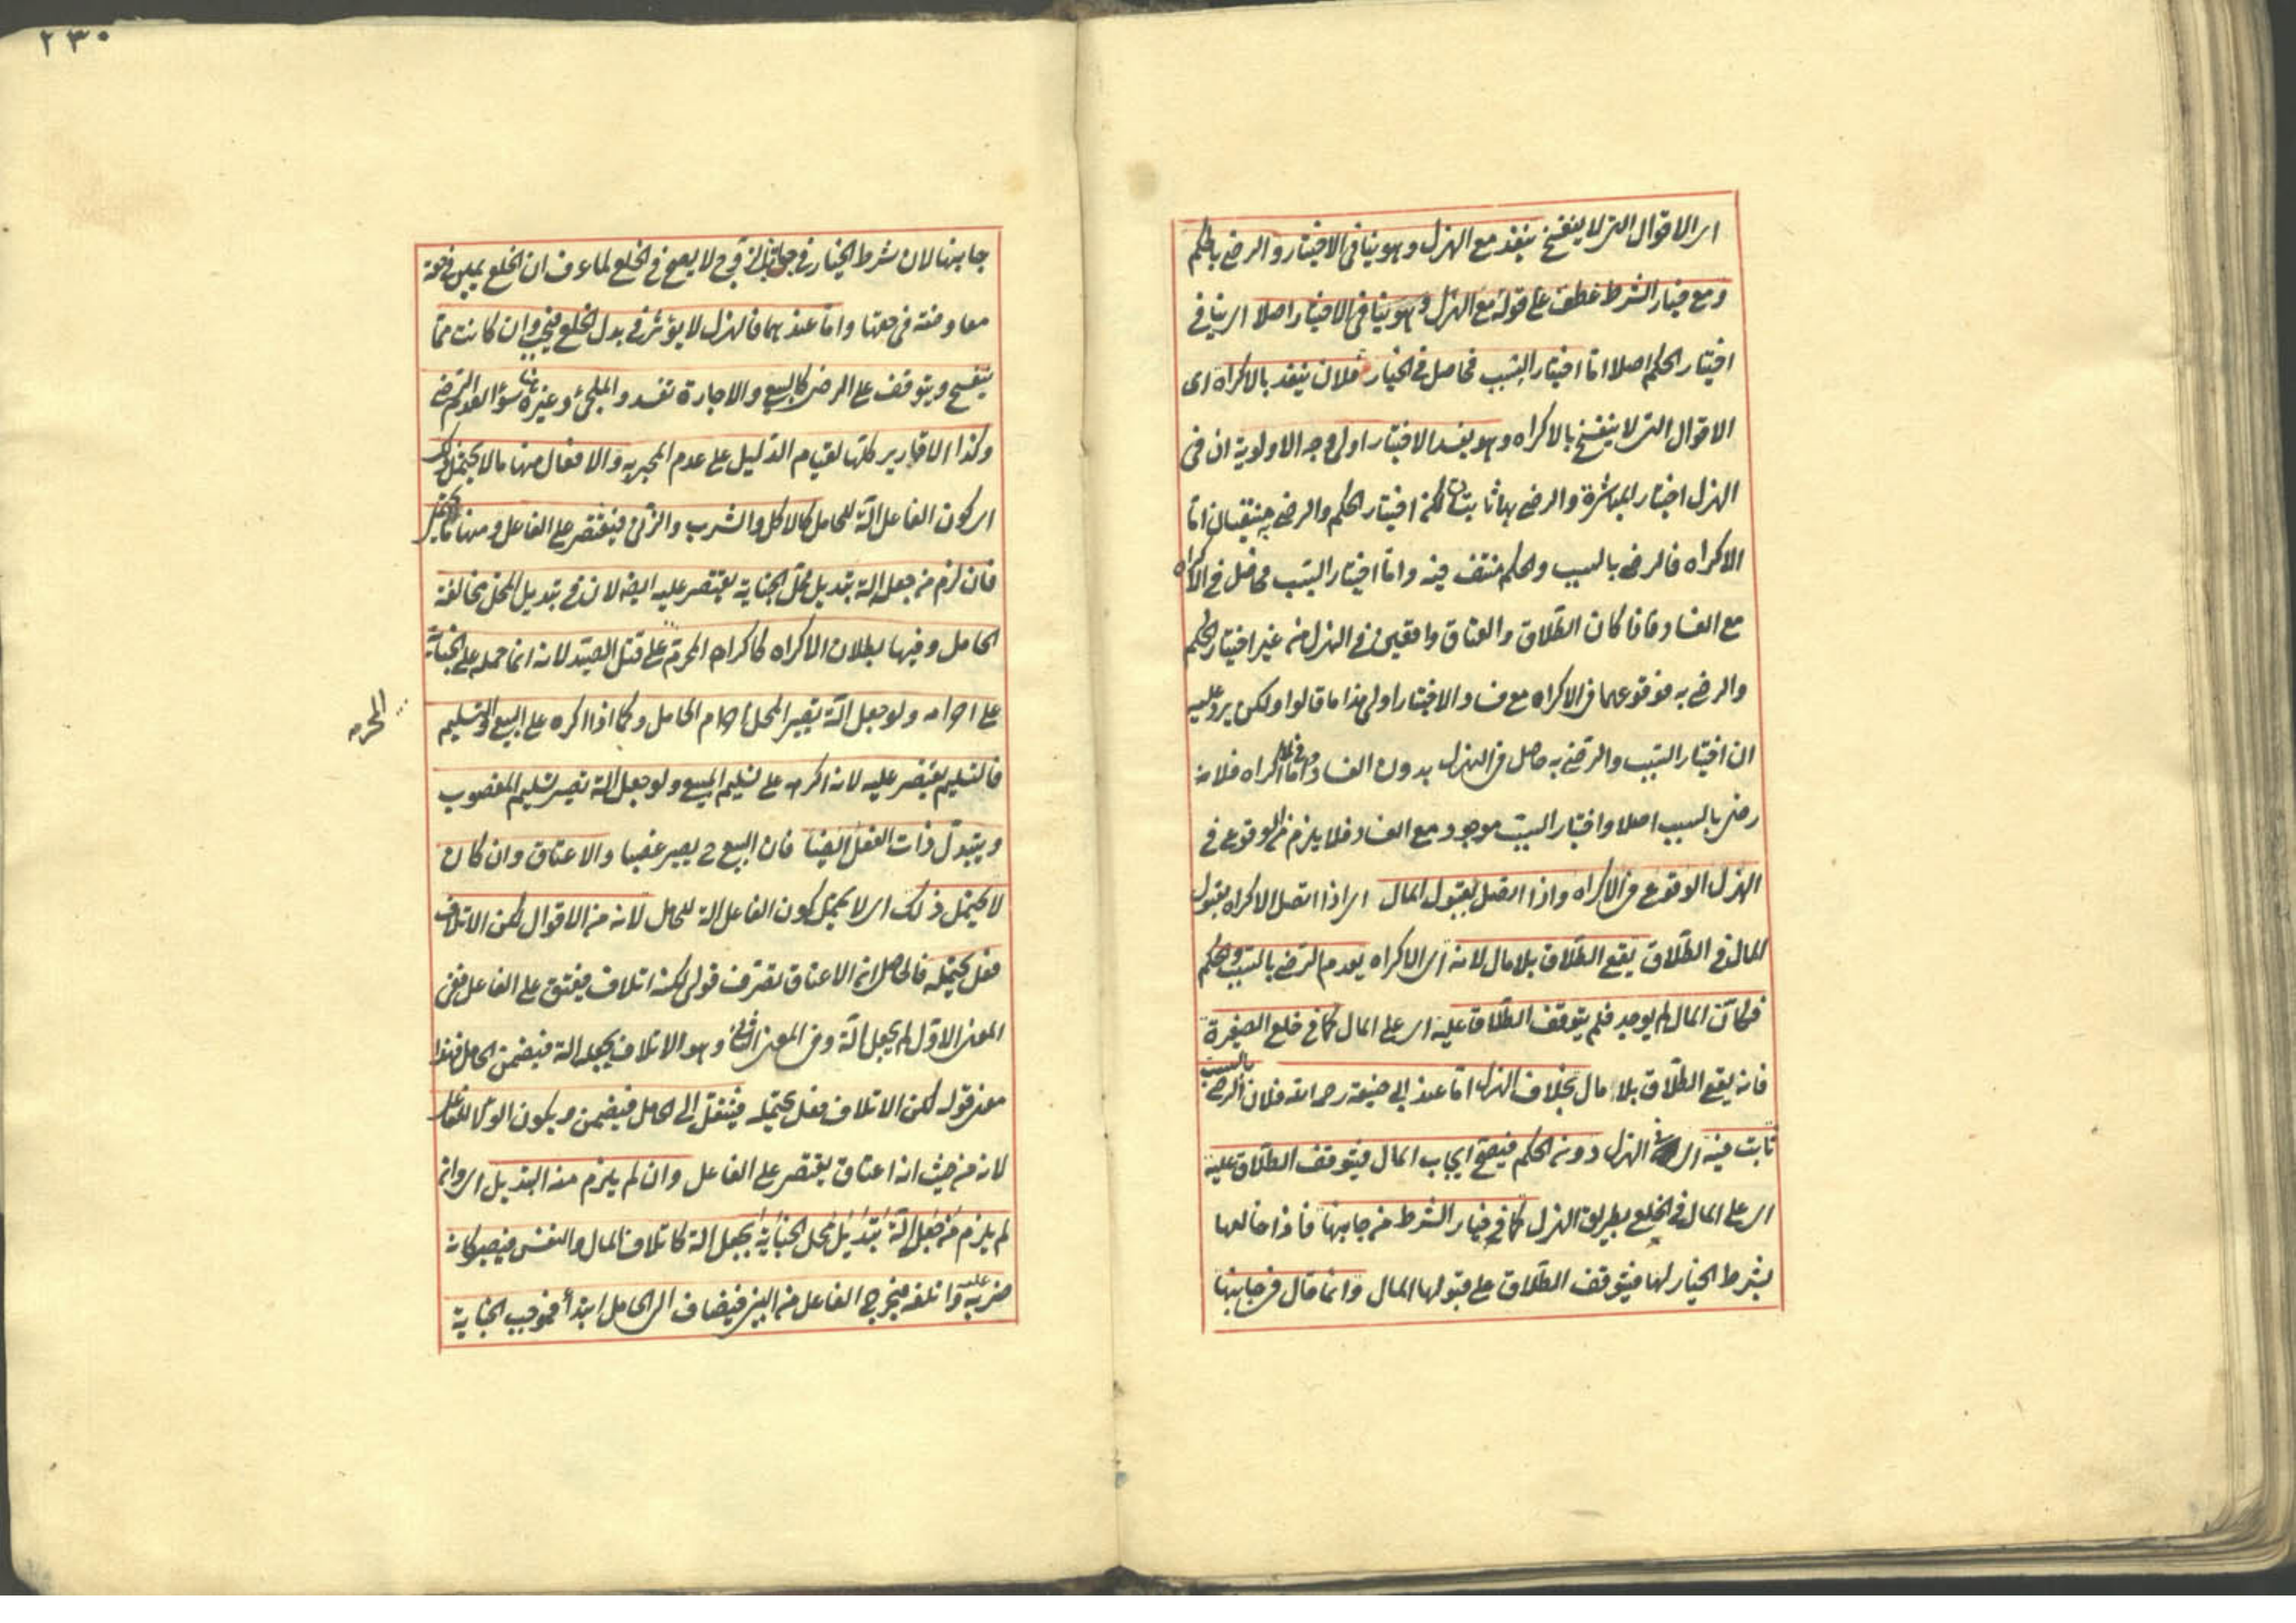 اى الاقوال التى لا ينفسخ ينفذ مع الهزل وهو ينافى الاختيار والرضى بالحكم
ومع خيار الشرط عطف على قوله مع الهزل وهو ينافى الاختيار اصلا اى ينافى
اختيار الحكم اصلا اما اختيار السبب فحاصل فى الخيار فلان ينفذ بالاكراه اى
الاقوال التى لا ينفسخ بالاكراه وهو يفسد الاختيار اولى وجه الاولوية ان فى
الهزل اختيار المباشرة والرضى بها ثابتان لكن اختيار الحكم والرضى به منتفيان اما
الاكراه فالرضى بالسبب والحكم منتف فيه واما اختيار السبب فحاصل فى الاكراه
مع الفساد فاذا كان الطلاق والعتاق واقعين فى الهزل من غير اختيار الحكم
والرضى به فوقوعهما فى الاكراه مع فساد الاختيار اولى هذا ما قالوا ولكن يرد عليه
ان اختيار السبب والرضى به حاصل فى الهزل بدون الفساد واما فى الاكراه فلانه
رضى بالسبب اصلا واختيار السبب موجود مع الفساد فلا يلزم من الوقوع فى
الهزل الوقوع فى الاكراه واذا اتصل بقبول المال اى اذا اتصل الاكراه بقبول
المال فى الطلاق يقع الطلاق بلا مال لانه اى الاكراه يعدم الرضى بالسبب والحكم
فكان المال لم يوجد فلم يتوقف الطلاق عليه اى على المال كما فى خلع الصغيرة
فانه يقع الطلاق بلا مال بخلاف الهزل اما عند ابى حنيفة رحمه الله فلان الرضى بالسبب
ثابت فيه اى فى الهزل دون الحكم فيصح ايجاب المال فيتوقف الطلاق عليه
اى على المال فى الخلع بطريق الهزل كما فى خيار الشرط من جانبها فاذا خالعها
بشرط الخيار لها فيتوقف الطلاق على قبولها المال وانما قال من جانبها
٢٣٠
جانبها لان شرط الخيار فى جانب الزوج لا يصح فى الخلع لما عرف ان الخلع يمين فى حقه
معاوضة فى حقها واما عندهما فالهزل لا يؤثر فى بدل الخلع فيجب وان كانت مما
ينفسخ ويتوقف على الرضى كالبيع والاجارة تفسد والملجئ وغيره هنا سواء لعدم الرضى
وكذا الاقارير كلها لقيام الدليل على عدم المخبر به والافعال منها ما لا يحتمل ذلك
اى كون الفاعل آلة للحامل كالاكل والشرب والزنى فيقتصر على الفاعل ومنها ما يحتمل
فان لزم من جعله آلة تبديل محل الجناية يقتصر عليه ايضا لان فى تبديل المحل مخالفة
الحامل وفيها بطلان الاكراه كاكراه المحرم على قتل الصيد لانه انما حمله على الجناية
على احرامه ولو جعل آلة يصير المحل احرام الحامل وكما اذا اكره على البيع والتسليم
فالتسليم يقتصر عليه لانه اكرهه على تسليم المبيع ولو جعل آلة تصير تسليم المغصوب
ويتبدل ذات الفعل ايضا فان البيع ح يصير غصبا والاعتاق وان كان
لا يحتمل ذلك اى لا يحتمل كون الفاعل آلة للحامل لانه من الاقوال لكن الاتلاف
فعل يحتمله فالحاصل ان الاعتاق تصرف قولى لكنه اتلاف فيعتق على الفاعل ففى
المعنى الاول لم يجعل آلة وفى المعنى الثانى وهو الاتلاف يجعل آلة فيضمن الحامل فهذا
معنى قوله لكن الاتلاف فعل يحتمله فينتقل الى الحامل فيضمن ويكون الولاء للفاعل
لانه من حيث انه اعتاق يقتصر على الفاعل وان لم يلزم منه التبديل اى وان
لم يلزم من جعل آلة تبديل محل الجناية يجعل آلة كاتلاف المال والنفس فيصير كانه
ضربه عليه واتلفه فيخرج الفاعل من البين فيضاف الى الحامل ابتداء فموجب الجناية
المحرم